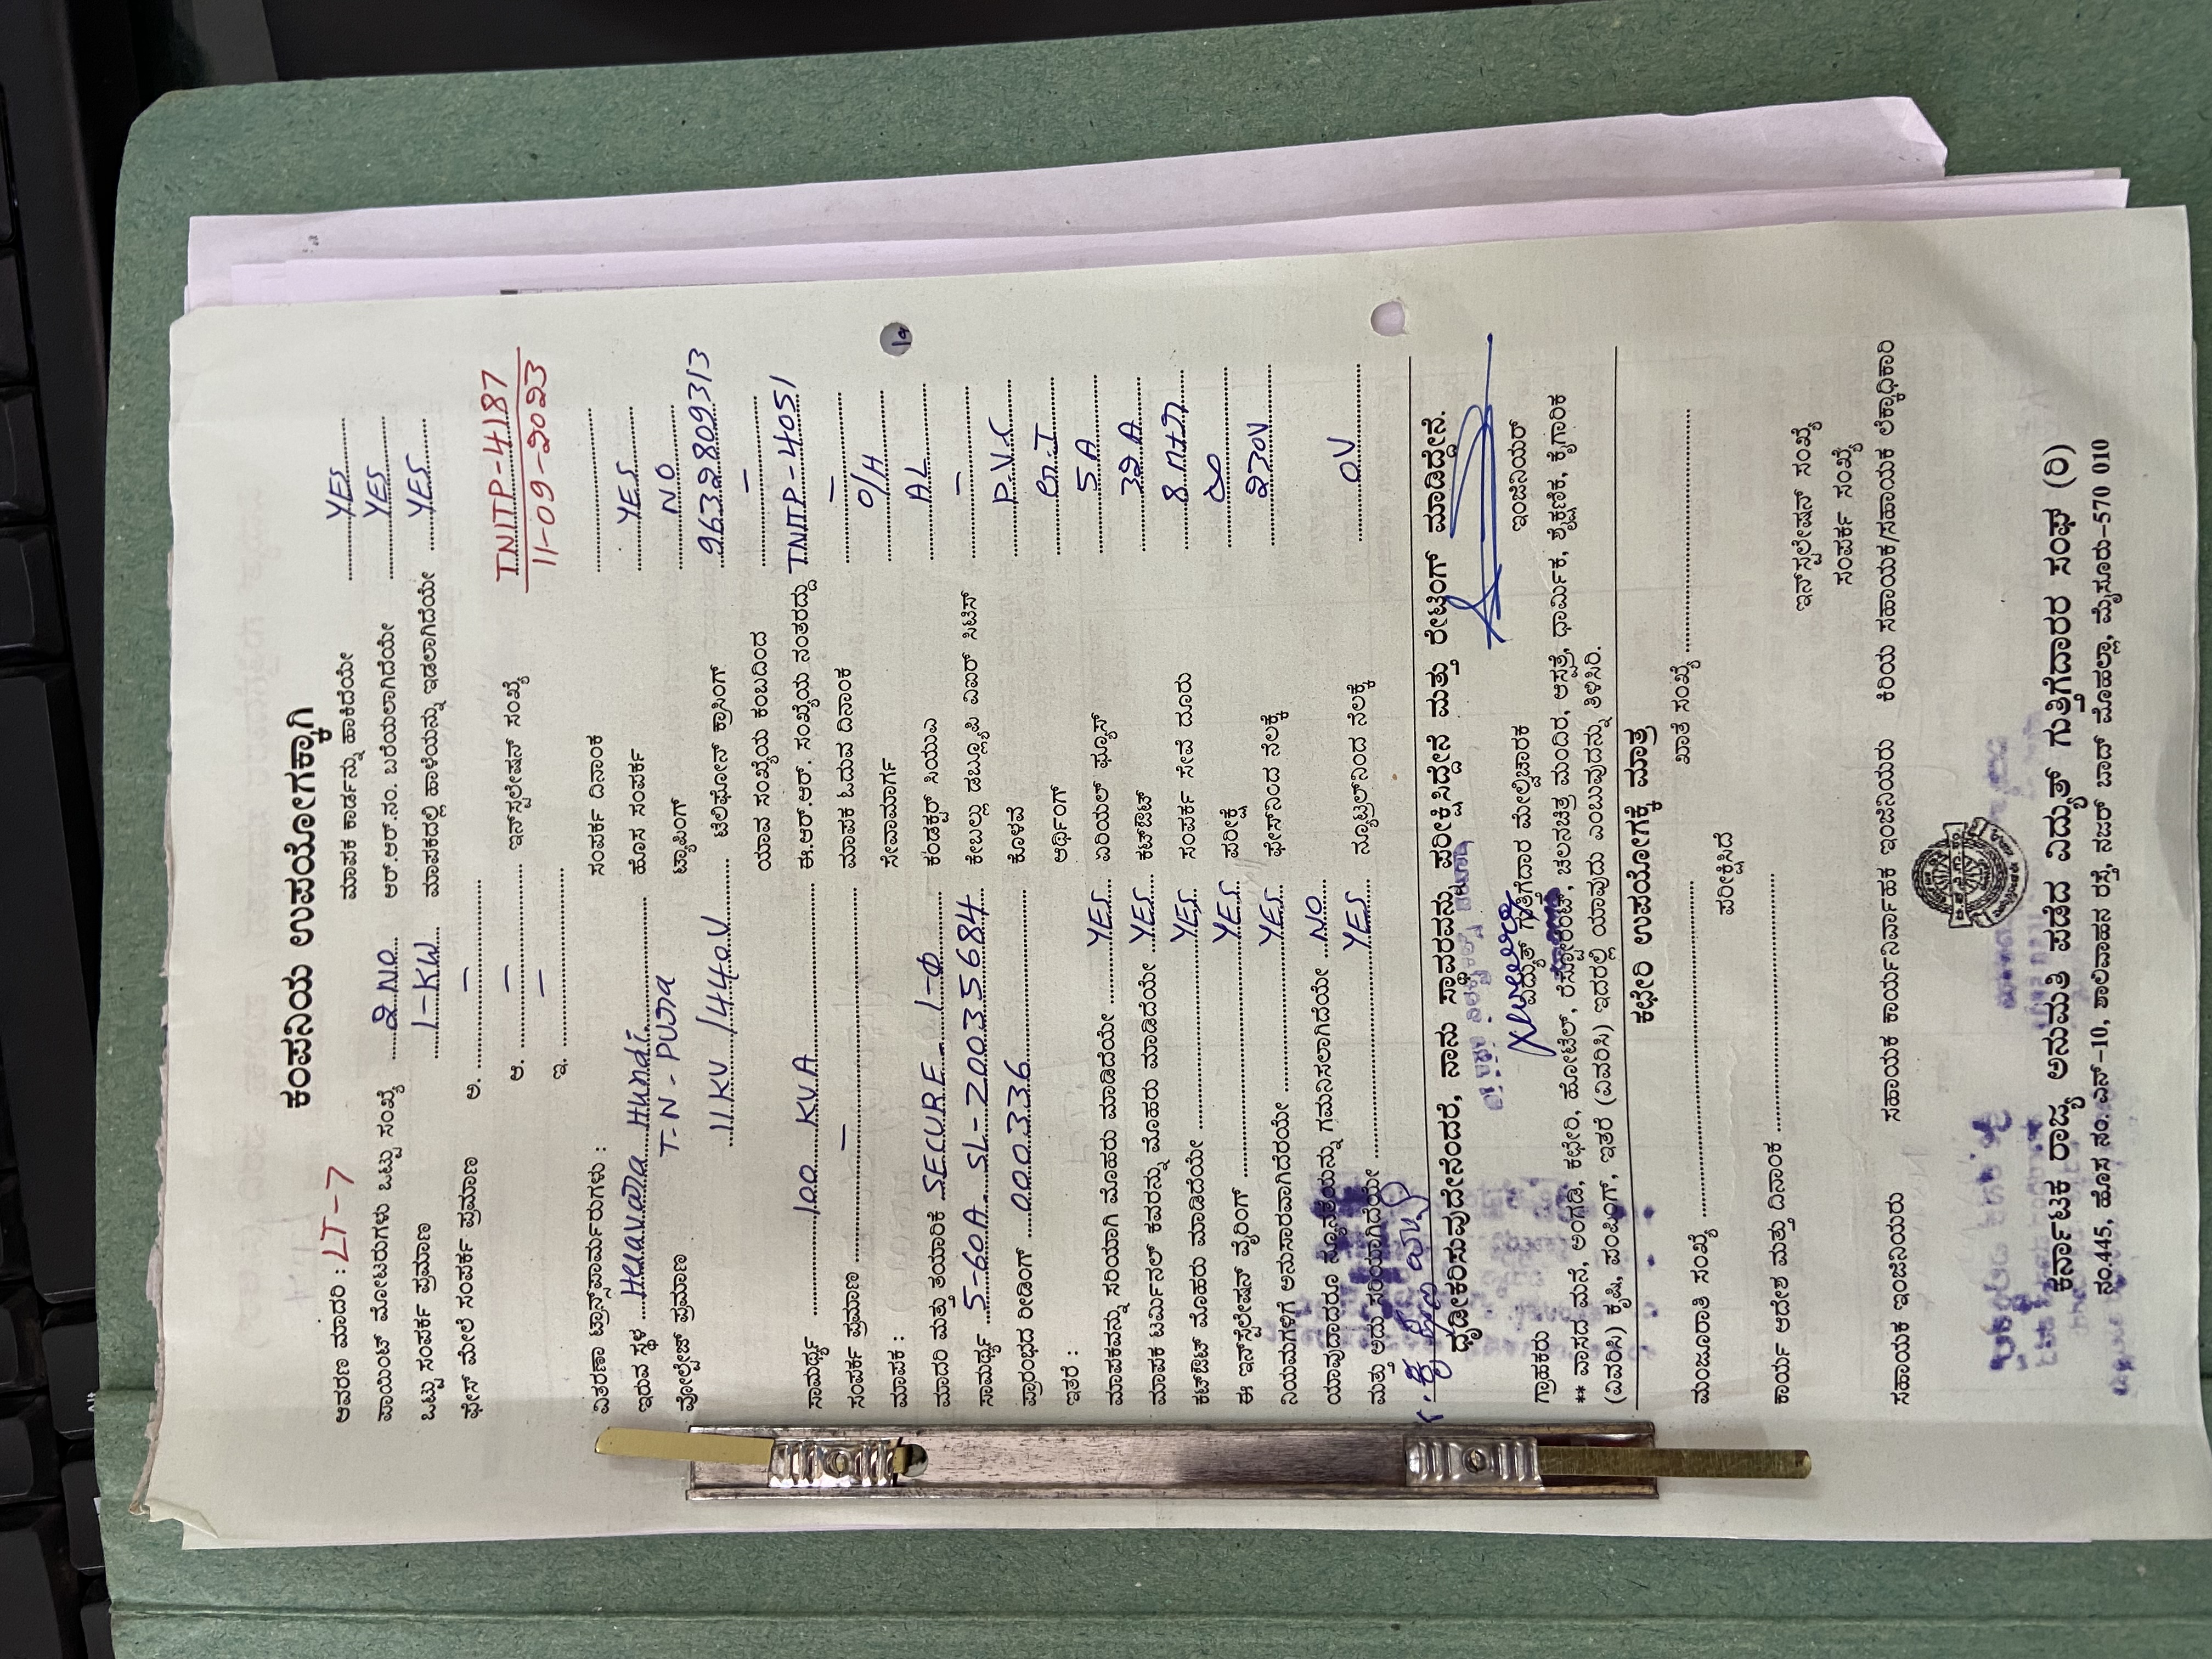 ಕಂಪನಿಯ ಉಪಯೋಗಕ್ಕಾಗಿ
ಆವರಣ ಮಾದರಿ : LT-7 ಮಾಪಕ ಕಾರ್ಡನ್ನು ಹಾಕಿದೆಯೇ YES
ಪಾಯಿಂಟ್ ಮೋಟರುಗಳು ಒಟ್ಟು ಸಂಖ್ಯೆ 2 NO ಆರ್.ಆರ್.ನಂ. ಬರೆಯಲಾಗಿದೆಯೇ YES
ಒಟ್ಟು ಸಂಪರ್ಕ ಪ್ರಮಾಣ 1-KW ಮಾಪಕದಲ್ಲಿ ಹಾಳೆಯನ್ನು ಇಡಲಾಗಿದೆಯೇ YES
ಫೇಸ್ ಮೇಲೆ ಸಂಪರ್ಕ ಪ್ರಮಾಣ ಅ. –
ಆ. – ಇನ್‌ಸ್ಟಲೇಷನ್ ಸಂಖ್ಯೆ TNITP-4187
ಇ. – 11-09-2023
ವಿತರಣಾ ಟ್ರಾನ್ಸ್‌ಫಾರ್ಮರುಗಳು : ಸಂಪರ್ಕ ದಿನಾಂಕ
ಇರುವ ಸ್ಥಳ Heluvana Hundi ಹೊಸ ಸಂಪರ್ಕ YES
T-N-PURA ಟ್ಯಾಪಿಂಗ್ NO
ವೋಲ್ಟೇಜ್ ಪ್ರಮಾಣ 11KV/440V ಟೆಲಿಫೋನ್ ಕ್ರಾಸಿಂಗ್ 9632809313
ಯಾವ ಸಂಖ್ಯೆಯ ಕಂಬದಿಂದ –
ಸಾಮರ್ಥ್ಯ 100 KVA ಈ.ಆರ್.ಆರ್. ಸಂಖ್ಯೆಯ ನಂತರದ್ದು TNITP-4051
ಸಂಪರ್ಕ ಪ್ರಮಾಣ – ಮಾಪಕ ಓದುವ ದಿನಾಂಕ –
ಮಾಪಕ : ಸೇವಾಮಾರ್ಗ O/H
ಮಾದರಿ ಮತ್ತು ತಯಾರಿಕೆ SECURE 1-Φ ಕಂಡಕ್ಟರ್ ಸಿಯುಎ AL
ಸಾಮರ್ಥ್ಯ 5-60A SL-20035684 ಕೇಬಲ್ಲು ಡಬ್ಲ್ಯೂಪಿ ವಿಐಆರ್ ಸಿಟಿಸ್ –
ಪ್ರಾರಂಭದ ರೀಡಿಂಗ್ 000336 ಕೊಳವೆ P.V.C
ಇತರೆ : ಅರ್ಥಿಂಗ್ G.I
ಮಾಪಕವನ್ನು ಸರಿಯಾಗಿ ಮೊಹರು ಮಾಡಿದೆಯೇ YES ಏರಿಯಲ್ ಫ್ಯೂಸ್ 5 A
ಮಾಪಕ ಟರ್ಮಿನಲ್ ಕವರನ್ನು ಮೊಹರು ಮಾಡಿದೆಯೇ YES ಕಟ್‌ಔಟ್ 32 A
ಕಟ್‌ಔಟ್ ಮೊಹರು ಮಾಡಿದೆಯೇ YES ಸಂಪರ್ಕ ಸೇವೆ ದೂರು
ಈ ಇನ್‌ಸ್ಟಲೇಷನ್ ವೈರಿಂಗ್ YES ಪರೀಕ್ಷೆ ∞
ನಿಯಮಗಳಿಗೆ ಅನುಸಾರವಾಗಿದೆಯೇ YES ಫೇಸ್‌ನಿಂದ ನೆಲಕ್ಕೆ 230V
ಯಾವುದಾದರೂ ನ್ಯೂನತೆಯನ್ನು ಗಮನಿಸಲಾಗಿದೆಯೇ NO
ಮತ್ತು ಅದು ಸರಿಯಾಗಿದೆಯೇ YES ನ್ಯೂಟ್ರಲ್‌ನಿಂದ ನೆಲಕ್ಕೆ 0V
ಧೃಡೀಕರಿಸುವುದೇನೆಂದರೆ, ನಾನು ಸ್ಥಾವರವನ್ನು ಪರೀಕ್ಷಿಸಿದ್ದೇನೆ ಮತ್ತು ರೇಟಿಂಗ್ ಮಾಡಿದ್ದೇನೆ.
ಗ್ರಾಹಕರು ವಿದ್ಯುತ್ ಗುತ್ತಿಗೆದಾರ ಮೇಲ್ವಿಚಾರಕ ಇಂಜಿನಿಯರ್
** ವಾಸದ ಮನೆ, ಅಂಗಡಿ, ಕಛೇರಿ, ಹೋಟೆಲ್, ರೆಸ್ಟೋರೆಂಟ್, ಚಲನಚಿತ್ರ ಮಂದಿರ, ಆಸ್ಪತ್ರೆ, ಧಾರ್ಮಿಕ, ಶೈಕ್ಷಣಿಕ, ಕೈಗಾರಿಕ
(ವಿವರಿಸಿ) ಕೃಷಿ, ಪಂಪಿಂಗ್, ಇತರೆ (ವಿವರಿಸಿ) ಇದರಲ್ಲಿ ಯಾವುದು ಎಂಬುವುದನ್ನು ತಿಳಿಸಿರಿ.
ಕಛೇರಿ ಉಪಯೋಗಕ್ಕೆ ಮಾತ್ರ
ಮಂಜೂರಾತಿ ಸಂಖ್ಯೆ ಖಾತೆ ಸಂಖ್ಯೆ
ಪರೀಕ್ಷಿಸಿದೆ
ಕಾರ್ಯ ಆದೇಶ ಮತ್ತು ದಿನಾಂಕ ಇನ್‌ಸ್ಟಲೇಷನ್ ಸಂಖ್ಯೆ
ಸಂಪರ್ಕ ಸಂಖ್ಯೆ
ಸಹಾಯಕ ಇಂಜಿನಿಯರು ಸಹಾಯಕ ಕಾರ್ಯನಿರ್ವಾಹಕ ಇಂಜಿನಿಯರು ಕಿರಿಯ ಸಹಾಯಕ/ಸಹಾಯಕ ಲೆಕ್ಕಾಧಿಕಾರಿ
ಕರ್ನಾಟಕ ರಾಜ್ಯ ಅನುಮತಿ ಪಡೆದ ವಿದ್ಯುತ್ ಗುತ್ತಿಗೆದಾರರ ಸಂಘ (ರಿ)
ನಂ.445, ಹೊಸ ನಂ. ಎನ್-10, ಶಾಲಿವಾಹನ ರಸ್ತೆ, ನಜರ್ ಬಾದ್ ಮೊಹಲ್ಲಾ, ಮೈಸೂರು-570 010